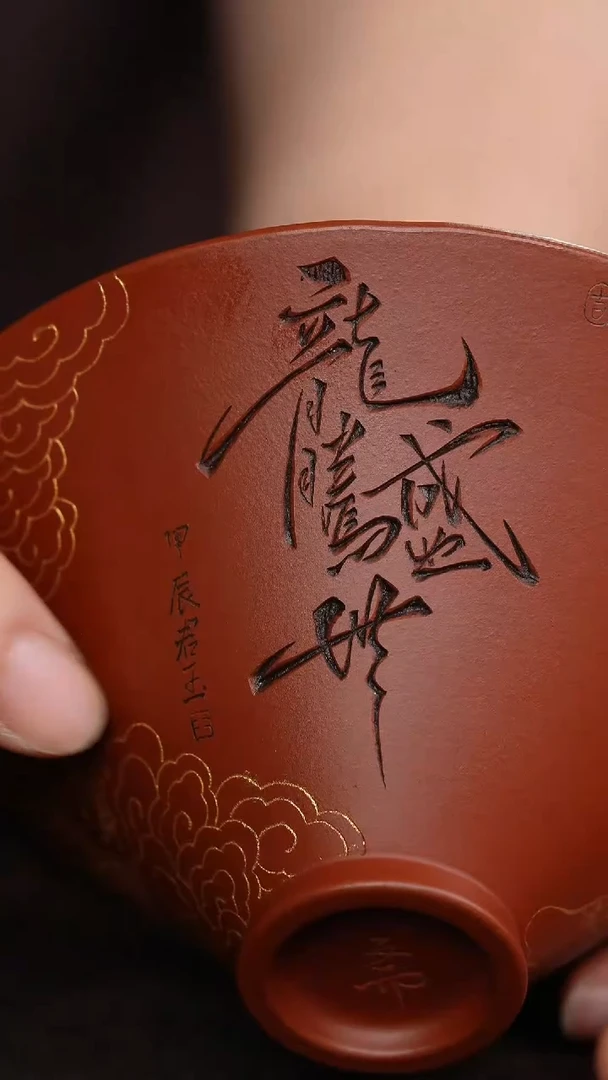 龍騰盛世
甲辰君玉